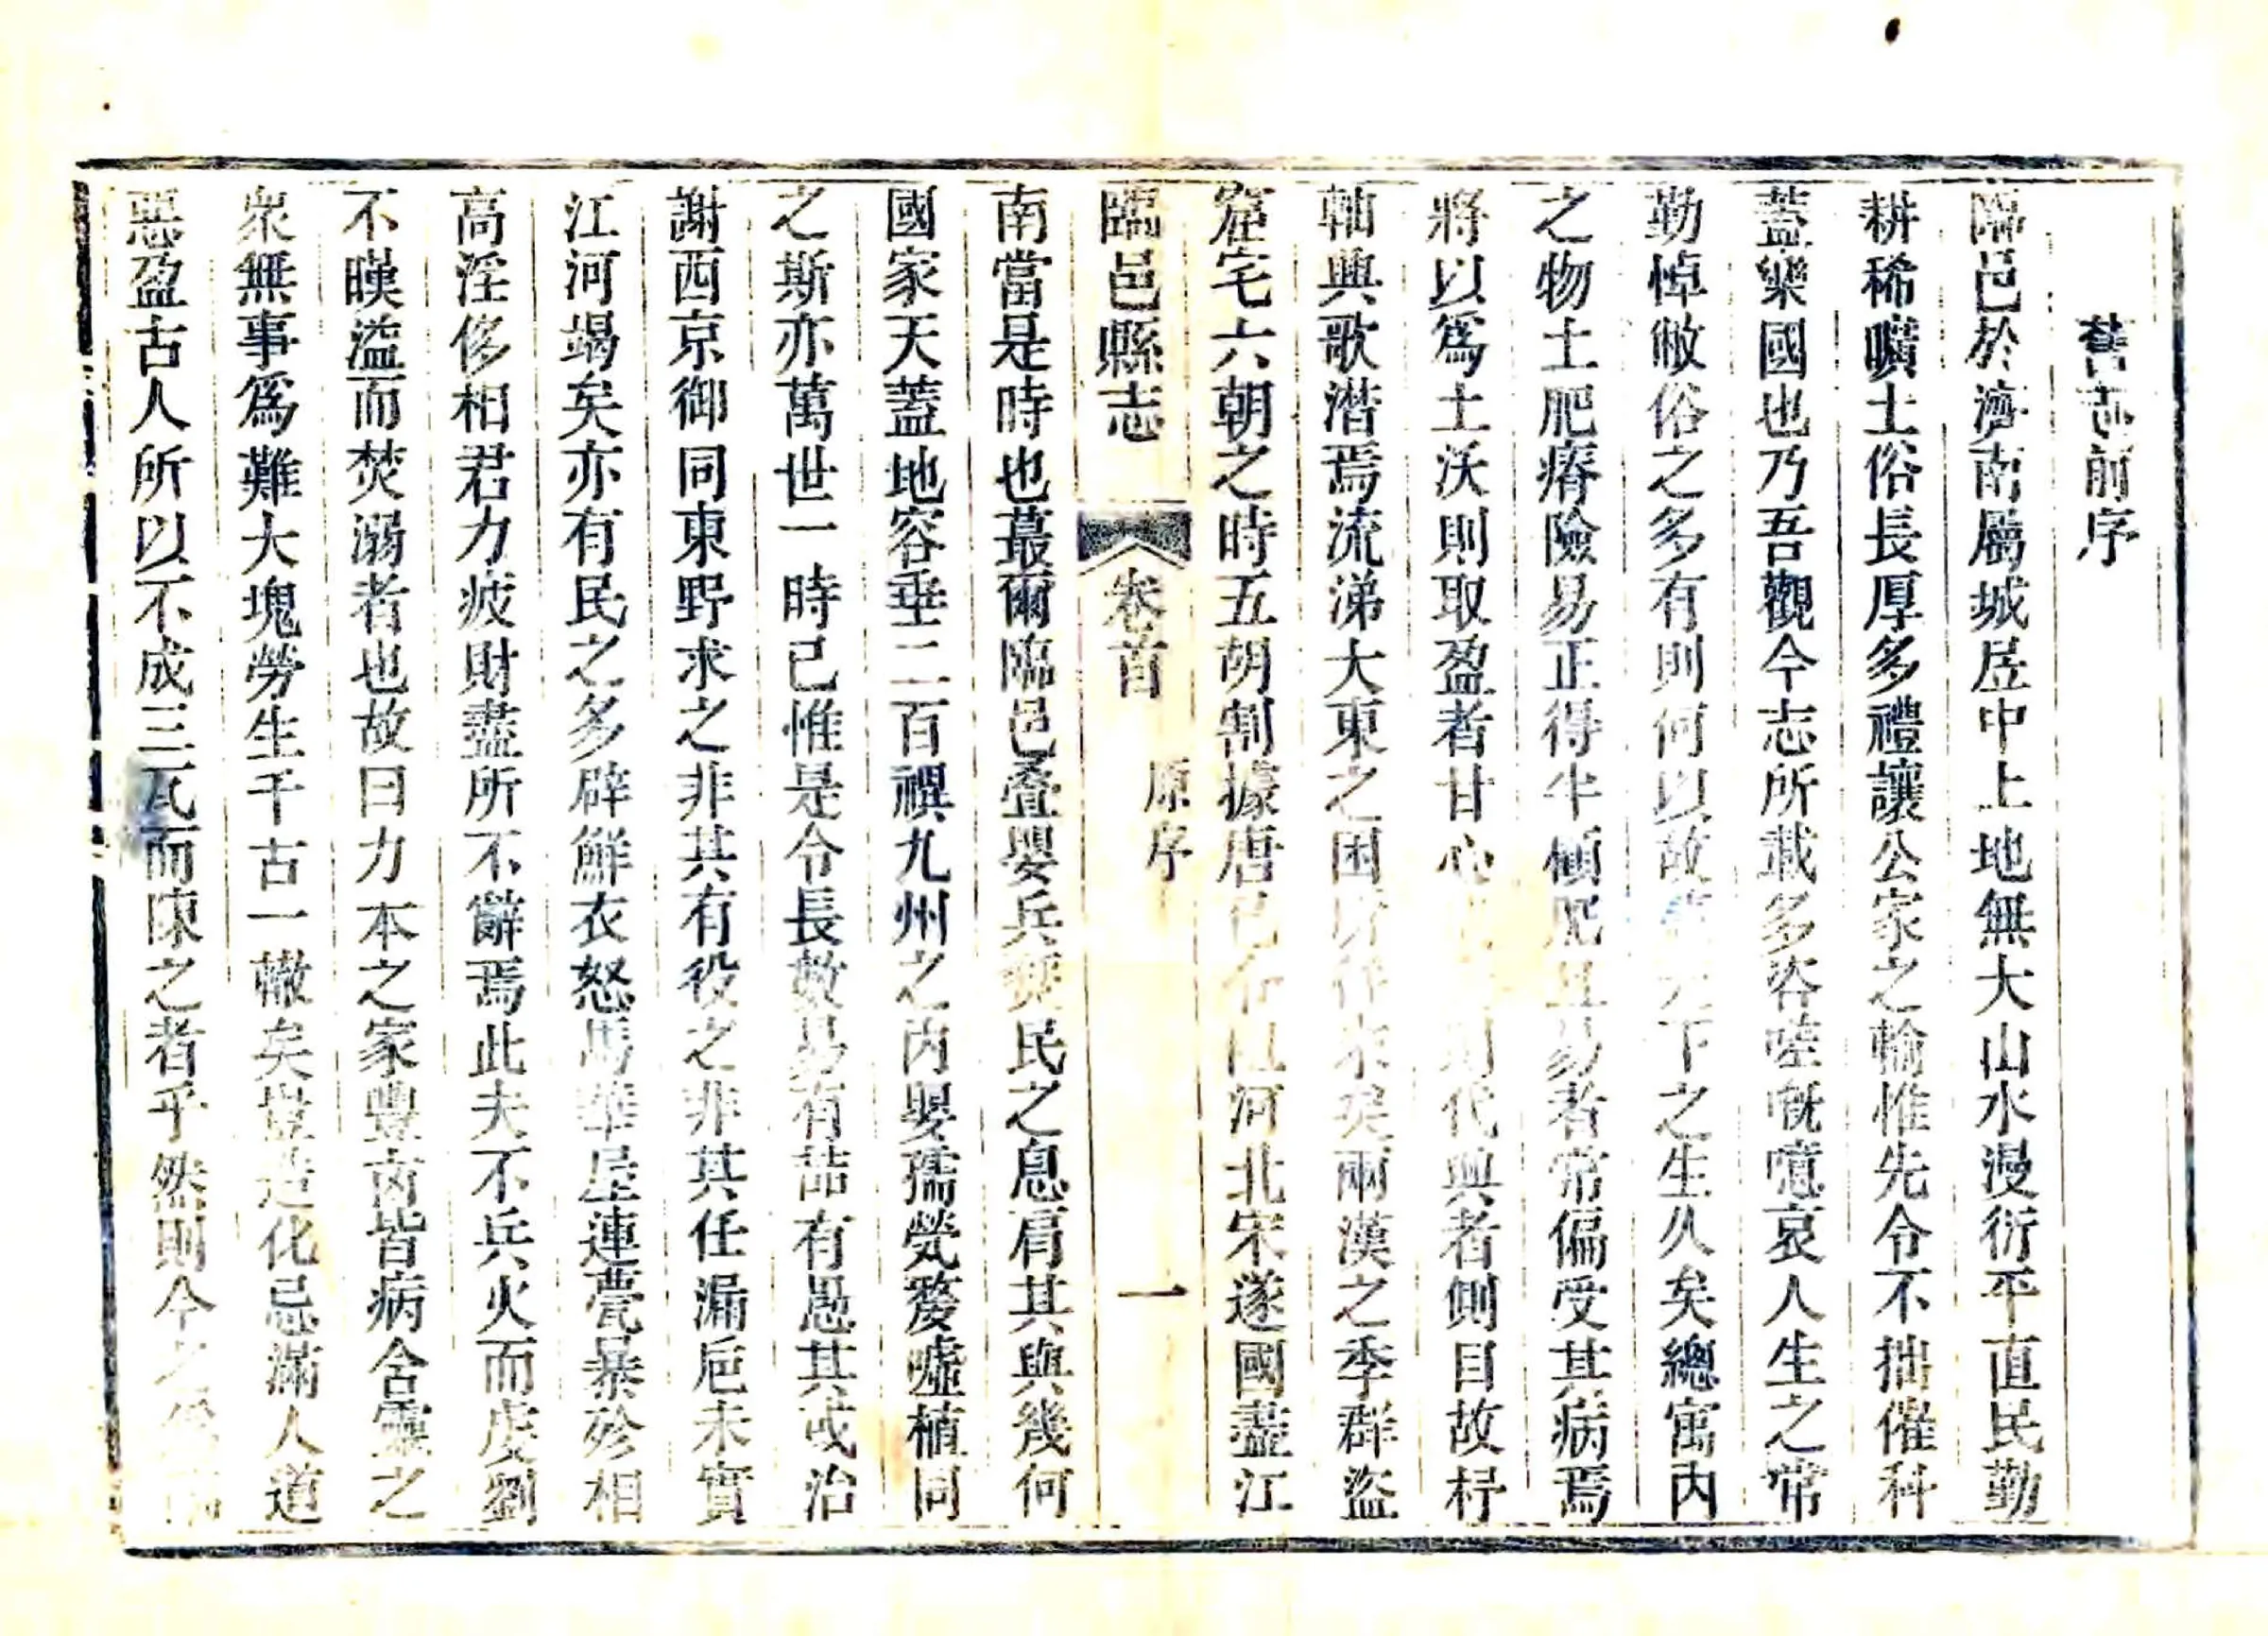 舊志前序
臨邑於濟南屬城居中上地無大山水漫衍平直民勤
耕稀曠土俗長厚多禮讓公家之輸惟先令不拙催科
蓋樂國也乃吾觀今志所載多咨嗟慨噫哀人生之常
勤悼敝俗之多有則何以故 下之生久矣總寓內
之物土肥瘠險易正得半 肥 易者常偏受其病焉
將以為土沃則取盈者甘心 則代興者側目故杼
軸興歌潛焉流涕大東之困 作 矣兩漢之季群盜
窟宅六朝之時五胡割據唐 河北宋遂國盡江
臨邑縣志
卷首
原序
一
南當是時也蕞爾臨邑疊嬰兵 民之息肩其與幾何
國家天蓋地容垂二百禩九州之內嬰孺煢嫠噓植同
之斯亦萬世一時已惟是令長數易有喆有愚其或治
謝西京御同東野求之非其有役之非其任漏巵未實
江河竭矣亦有民之多辟鮮衣怒馬華屋連甍暴殄相
高淫侈相君力疲財盡所不辭焉此夫不兵火而虔劉
不暵溢而焚溺者也故曰力本之家豐凶皆病含靈之
衆無事爲難大塊勞生千古一轍矣豈造化忌滿人道
惡盈古人所以不成三瓦而陳之者乎然則今之